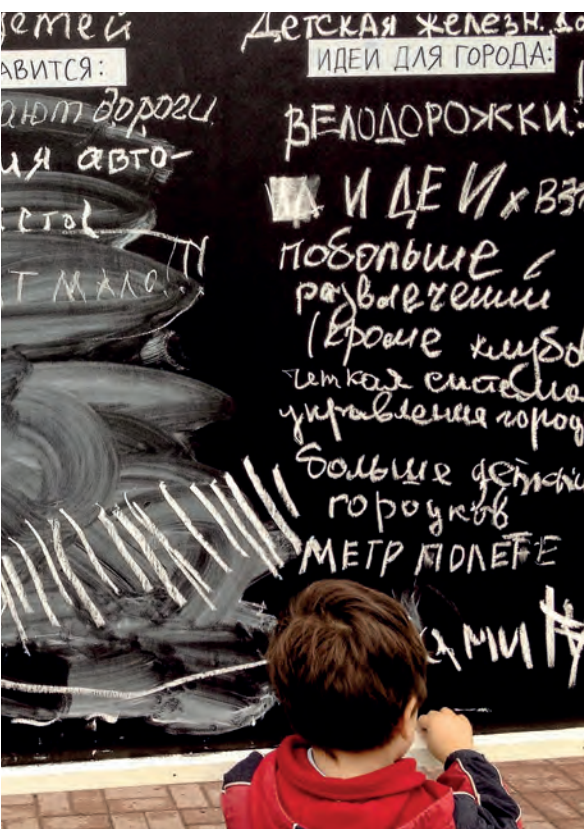 етей
АВИТСЯ:
ают дороги
ия авто-
Т МАЛО..
Детская железн. до
ИДЕИ ДЛЯ ГОРОДА:
ВЕЛОДОРОЖКИ:
ИДЕИ х ВЗ
побольше
развлечений
(кроме клубо
четкая система
управления город
больше детских
городков
МЕТР ПОЛЕГЕ
АМИ